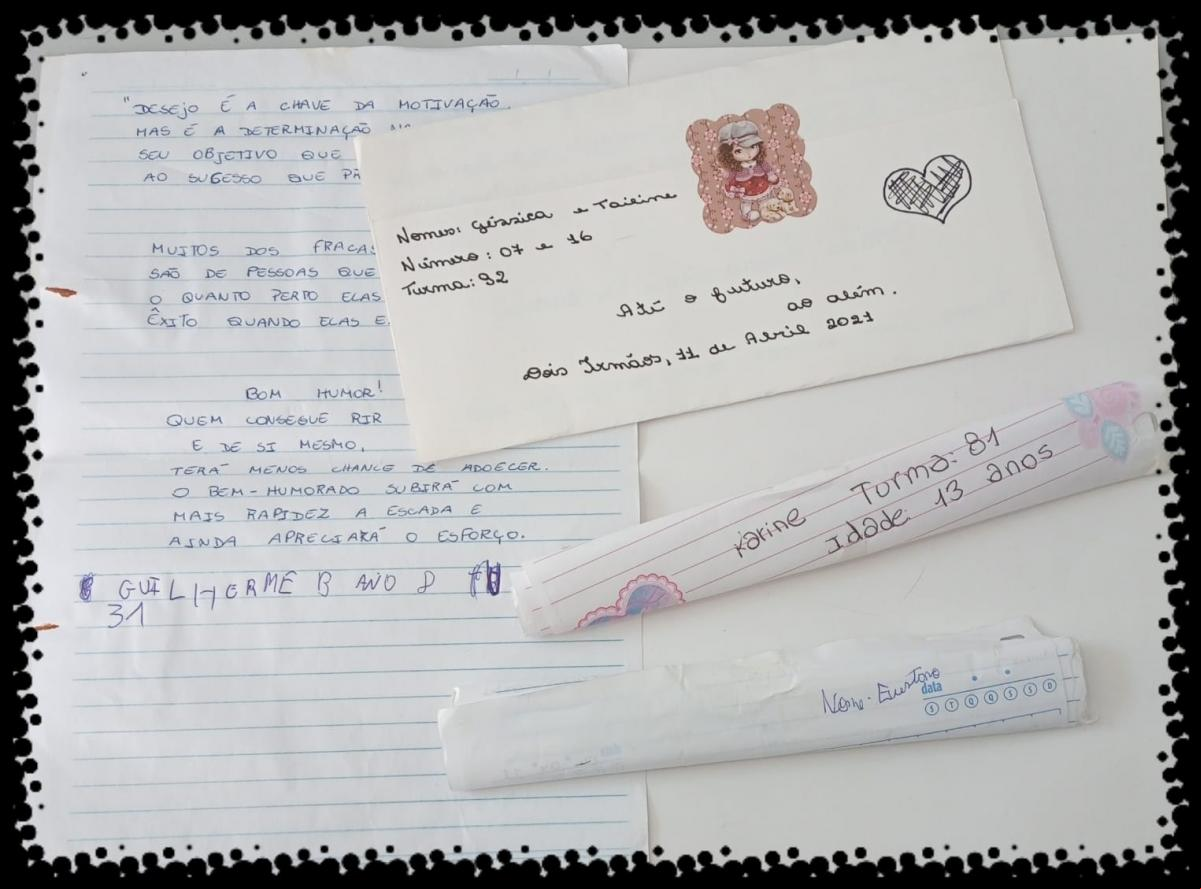 "DESEJO É A CHAVE DA MOTIVAÇÃO
MAS É A DETERMINAÇÃO
SEU OBJETIVO QUE
AO SUCESSO QUE
MUITOS DOS
SÃO DE PESSOAS QUE
O QUANTO PERTO ELAS
ÊXITO QUANDO ELAS
BOM HUMOR!
QUEM CONSEGUE RIR
E DE SI MESMO,
TERÁ MENOS CHANCE DE ADOECER.
O BEM-HUMORADO SUBIRÁ COM
MAIS RAPIDEZ A ESCADA E
AINDA APRECIARÁ O ESFORÇO.
GUILHERME B ANO 8
31
Nomes: Géssica e Taieine
Número: 07 e 16
Turma: 92
Até o futuro,
ao além.
Dois Irmãos, 11 de Abril 2021
Karine Turma: 81
Idade: 13 anos
Nome: 
data
S T Q Q S S D